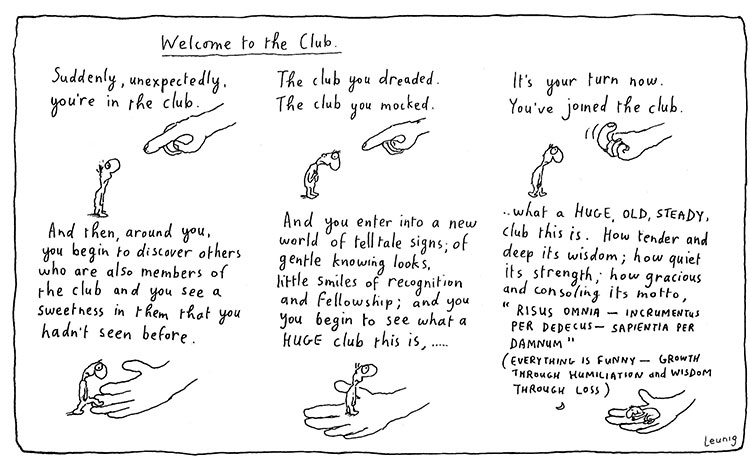 Welcome to the Club.
Suddenly, unexpectedly,
you're in the club.
And then, around you,
you begin to discover others
who are also members of
the club and you see a
sweetness in them that you
hadn't seen before.
The club you dreaded.
The club you mocked.
And you enter into a new
world of telltale signs; of
gentle knowing looks,
little smiles of recognition
and fellowship; and you
you begin to see what a
HUGE club this is, .....
It's your turn now.
You've joined the club.
..what a HUGE, OLD, STEADY,
club this is. How tender and
deep its wisdom; how quiet
its strength; how gracious
and consoling its motto,
" RISUS OMNIA — INCRUMENTUS
PER DEDECUS — SAPIENTIA PER
DAMNUM "
(EVERYTHING IS FUNNY — GROWTH
THROUGH HUMILIATION and WISDOM
THROUGH LOSS)
Leunig